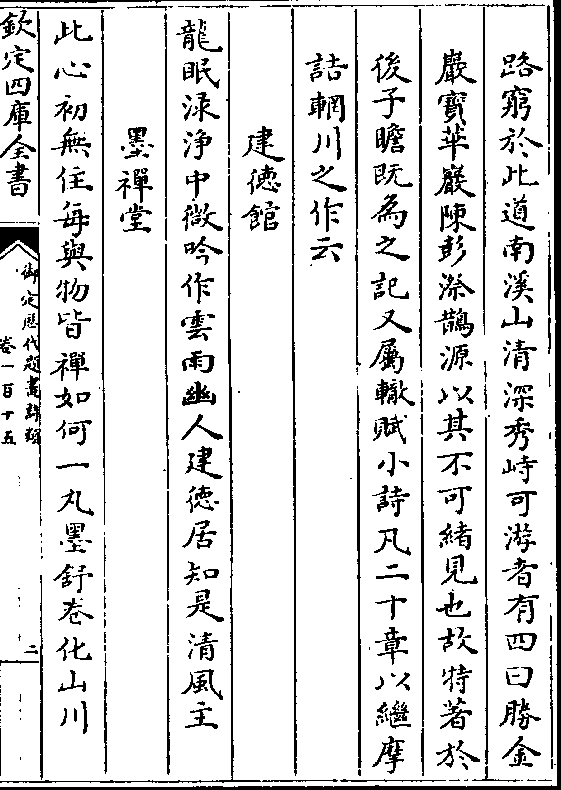 路窮於此道南溪山清深秀峙可游者有四曰勝金
巖寳華巖陳彭漈鵲源以其不可緒見也故特著於
後子瞻既為之記又屬轍賦小詩凡二十章以繼摩
詰輞川之作云
建德館
龍眠渌浄中微吟作雲雨幽人建德居知是清風主
墨禪堂
此心初無住每與物皆禪如何一丸墨舒卷化山川
欽定四庫全書
御定歴代題畫詩類
卷一百十五
二